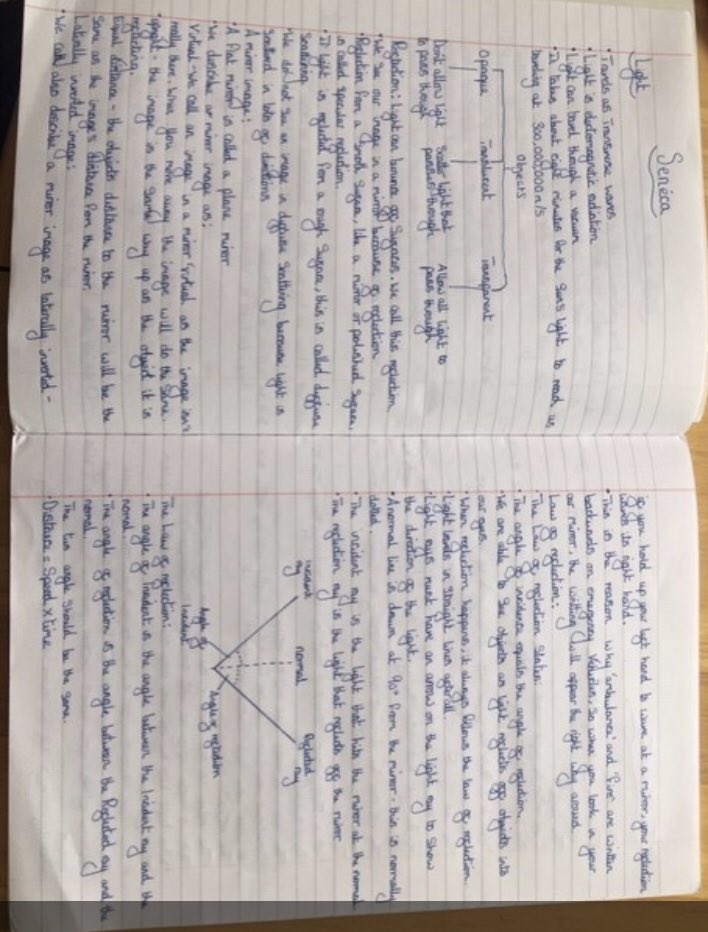 Seneca
Light
• Travels as Transverse waves
• Light is electromagnetic radiation
• Light can travel through a vacuum
• It takes about eight minutes for the Sun's light to reach us
travelling at 300,000,000 m/s
Objects
Opaque Translucent Transparent
Don't allow light Scatter light that Allow all light to
to pass through passes through pass through
Reflection: Light can bounce off Surfaces. We call this reflection.
• We see our image in a mirror because of reflection
• Reflection from a Smooth Surface, like a mirror or polished Surface,
is called specular reflection.
• If light is reflected from a rough Surface, this is called diffuse
Scattering
• We do not see an image in diffuse Scattering because light is
Scattered in lots of directions
A mirror image:
• A flat mirror is called a plane mirror
• We describe our mirror image as:
Virtual - We call an image in a mirror 'virtual' as the image isn't
really there. When you move away the image will do the same.
• Upright - the image is the Same way up as the object it is
reflecting.
Equal distance - the objects distance to the mirror will be the
Same as the image's distance from the mirror.
Laterally inverted image:
• We call also describe a mirror image as laterally inverted -
if you hold up your left hand to wave at a mirror, your reflection
holds its right hand.
• This is the reason why 'ambulance' and 'Fire' are written
backwards on emergency Vehicles. So when you look in your
car mirror, the writing will appear the right way around
Law of reflection:
• The Law of reflection States:
• The angle of incidence equals the angle of reflection.
• We are able to See objects as light reflects off objects into
our eyes.
• When reflection happens, it always follows the law of reflection.
• Light travels in Straight lines
• Light rays must have an arrow on the light ray to Show
the direction of the light.
• A normal line is drawn at 90° from the mirror - this is normally
dotted.
• The incident ray is the light that hits the mirror at the normal.
• The reflection ray is the light that reflects off the mirror
incident normal Reflected
ray ray
Angle of Angle of reflection
Incident
The Law of reflection:
• The angle of Incident is the angle between the Incident ray and the
normal.
• The angle of reflection is the angle between the Reflected ray and the
normal.
The two angle Should be the same.
• Distance = Speed x time